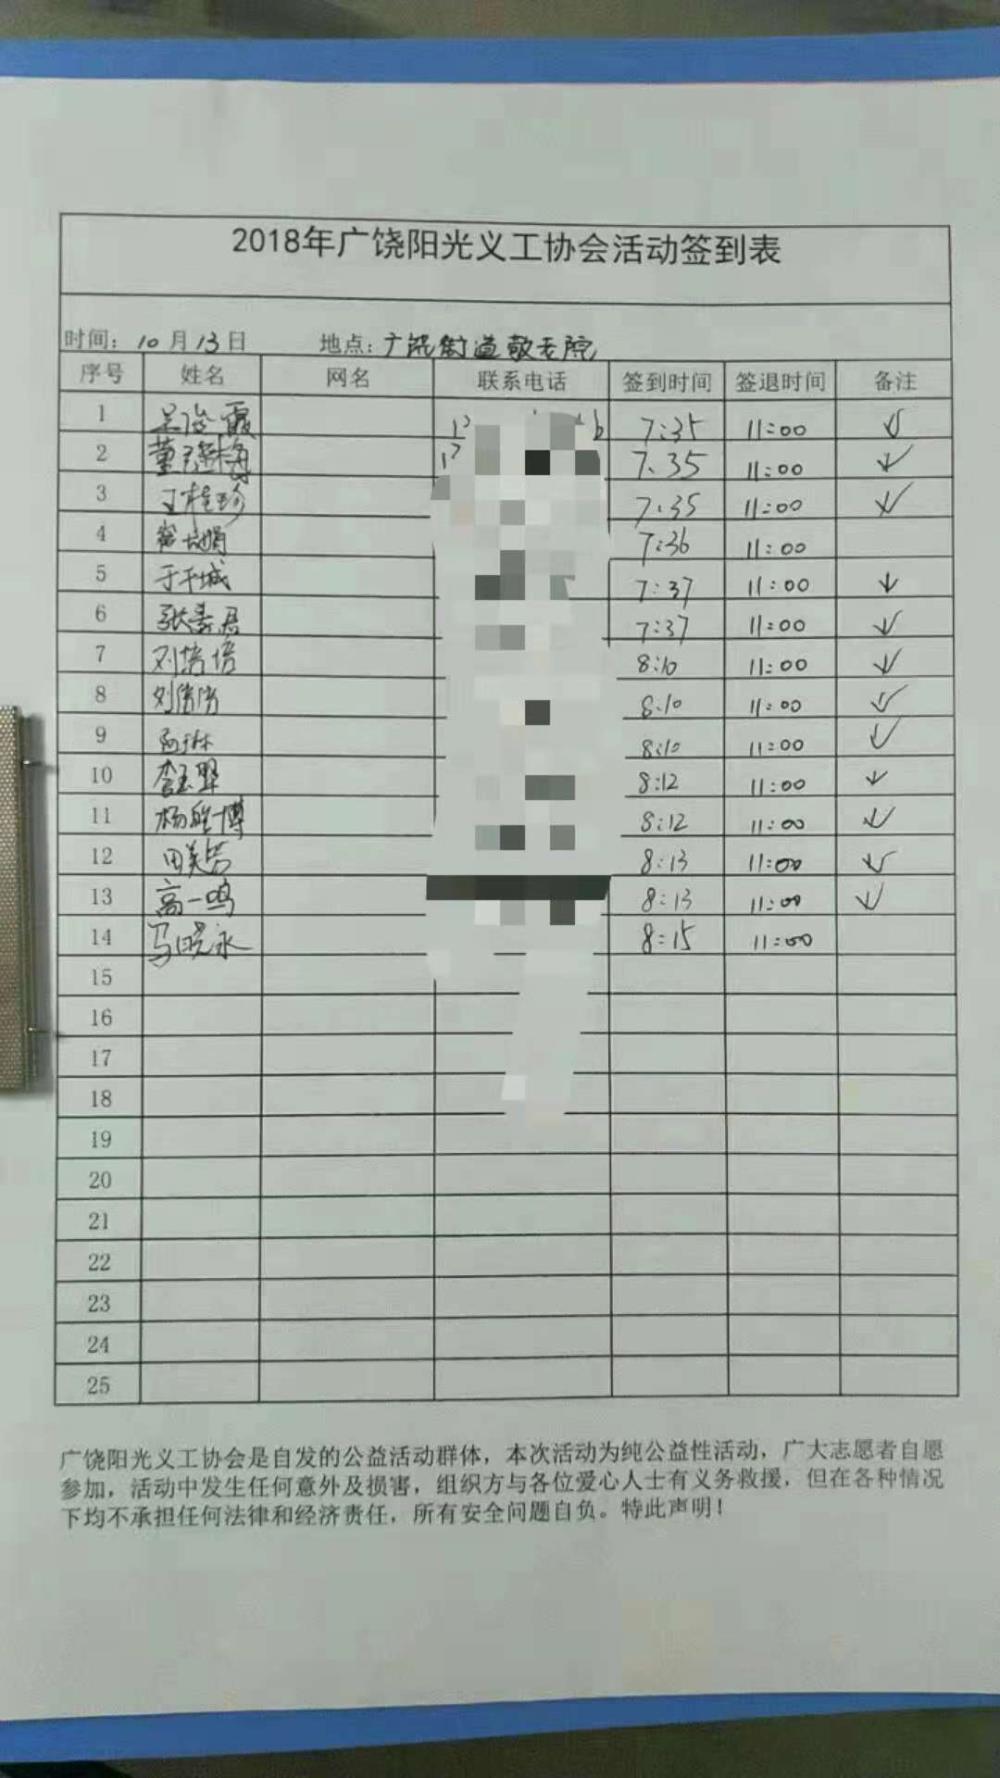 2018年广饶阳光义工协会活动签到表
时间：10月13日 地点：广饶街道敬老院
序号 姓名 网名 联系电话 签到时间 签退时间 备注
1 霞 7:35 11:00 ✓
2 董 梅 7:35 11:00 ✓
3 王桂珍 7:35 11:00 ✓
4 娟 7:36 11:00
5 于千城 7:37 11:00 ✓
6 张 君 7:37 11:00 ✓
7 刘培培 8:10 11:00 ✓
8 刘倩倩 8:10 11:00 ✓
9 8:10 11:00 ✓
10 李玉 8:12 11:00 ✓
11 杨 博 8:12 11:00 ✓
12 田美芳 8:13 11:00 ✓
13 高一鸣 8:13 11:00 ✓
14 马晓永 8:15 11:00
15
16
17
18
19
20
21
22
23
24
25
广饶阳光义工协会是自发的公益活动群体，本次活动为纯公益性活动，广大志愿者自愿
参加，活动中发生任何意外及损害，组织方与各位爱心人士有义务救援，但在各种情况
下均不承担任何法律和经济责任，所有安全问题自负。特此声明！